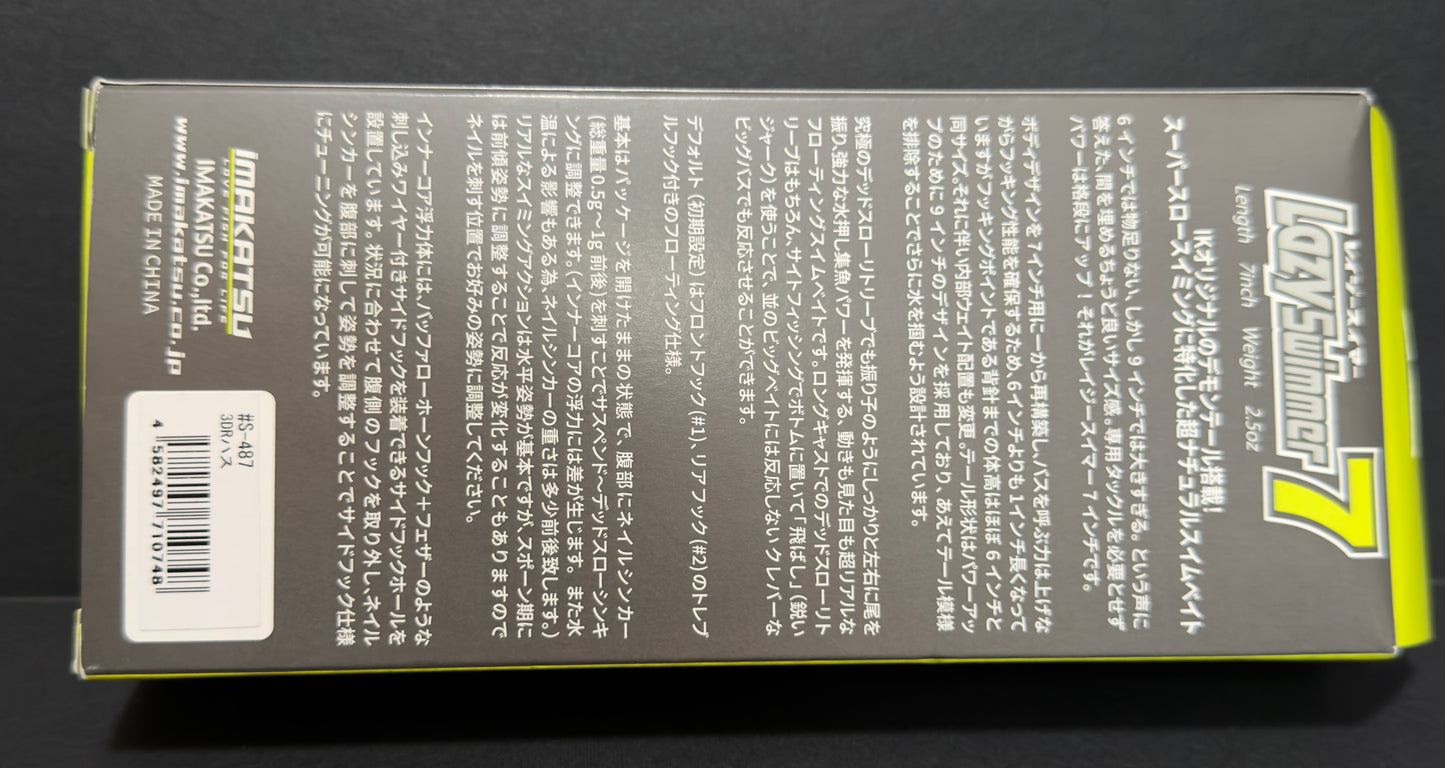 レイジースイマー
Lazy Swimmer 7
Length 7inch Weight 2.5oz
IKオリジナルのデモンテール搭載！
スーパースロースイミングに特化した超ナチュラルスイムベイト
6インチでは物足りない、しかし9インチでは大きすぎる。という声に
答えた、間を埋めるちょうど良いサイズ感。専用タックルを必要とせず
パワーは格段にアップ！それがレイジースイマー7インチです。
ボディデザインを7インチ用に一から再構築し、バスを呼ぶ力は上げな
がらフッキング性能を確保するため、6インチよりも1インチ長くなって
いますがフッキングポイントである背針までの体高はほぼ6インチと
同サイズ、それに伴い内部ウェイト配置も変更。テール形状はパワーアッ
プのために9インチのデザインを採用しており、あえてテール模様
を排除することでさらに水を掴むよう設計されています。
究極のデッドスローリトリーブでも振り子のようにしっかりと左右に尾を
振り、強力な水押し集魚パワーを発揮する、動きも見た目も超リアルな
フローティングスイムベイトです。ロングキャストでのデッドスローリト
リーブはもちろん、サイトフィッシングでボトムに置いて「飛ばし」（鋭い
ジャーク）を使うことで、並のビッグベイトには反応しないクレバーな
ビッグバスでも反応させることができます。
デフォルト（初期設定）はフロントフック(#1)、リアフック(#2)のトレブ
ルフック付きのフローティング仕様。
基本はパッケージを開けたままの状態で、腹部にネイルシンカー
(総重量0.5g～1g前後)を刺すことでサスペンド～デッドスローシンキ
ングに調整できます。(インナーコアの浮力には差が生じます。また水
温による影響もある為、ネイルシンカーの重さは多少前後致します。)
リアルなスイミングアクションは水平姿勢が基本ですが、スポーン期に
は前傾姿勢に調整することで反応が変化することもありますので
ネイルを刺す位置でお好みの姿勢に調整してください。
インナーコア浮力体には、バッファローホーンフック＋フェザーのような
刺し込みワイヤー付きサイドフックを装着できるサイドフックホールを
設置しています。状況に合わせて腹側のフックを取り外し、ネイル
シンカーを腹部に刺して姿勢を調整することでサイドフック仕様
にチューニングが可能になっています。
IMAKATSU
LOVE FISH FOR LIFE
IMAKATSU Co.,ltd.
www.imakatsu.co.jp
MADE IN CHINA
#S-487
3DRハス
4 582497 710748